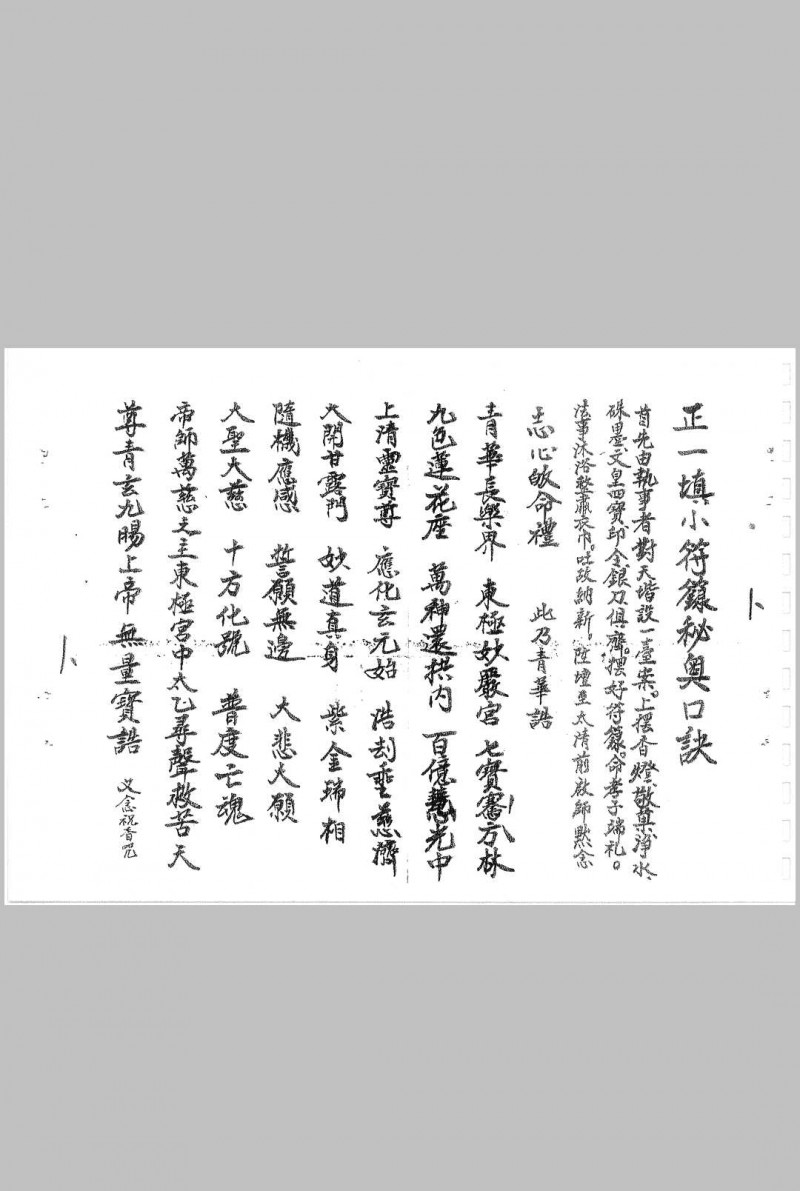 正一填小符籙秘奧口訣
首先由執事者對天堦設一臺案。上擺香燈敬菓淨水、
硃墨文皇四寶印令銀刀俱齊。擺好符籙。命孝子端礼。
法事沐浴整肅衣巾。吐故納新。陞壇至太清前啟師黙念
志心皈命禮 此乃青華誥
青華長樂界 東極妙嚴宮 七寶騫方林
九色蓮花座 萬神還拱內 百億慧光中
上清靈寶尊 應化玄元始 浩刧垂慈濟
大開甘露門 妙道真身 紫金瑞相
隨機應感 誓願無邊 大悲大願
大聖大慈 十方化號 普度亡魂
帝師萬慈之主東極宮中太乙尋聲救苦天
尊青玄九暘上帝 無量寶誥 又念祝香咒
卜
卜